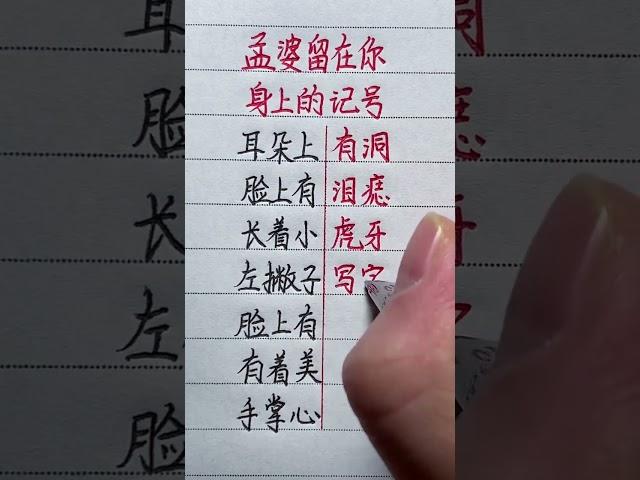 孟婆留在你
身上的记号
耳朵上有洞
脸上有泪痣
长着小虎牙
左撇子写字
脸上有
有着美
手掌心